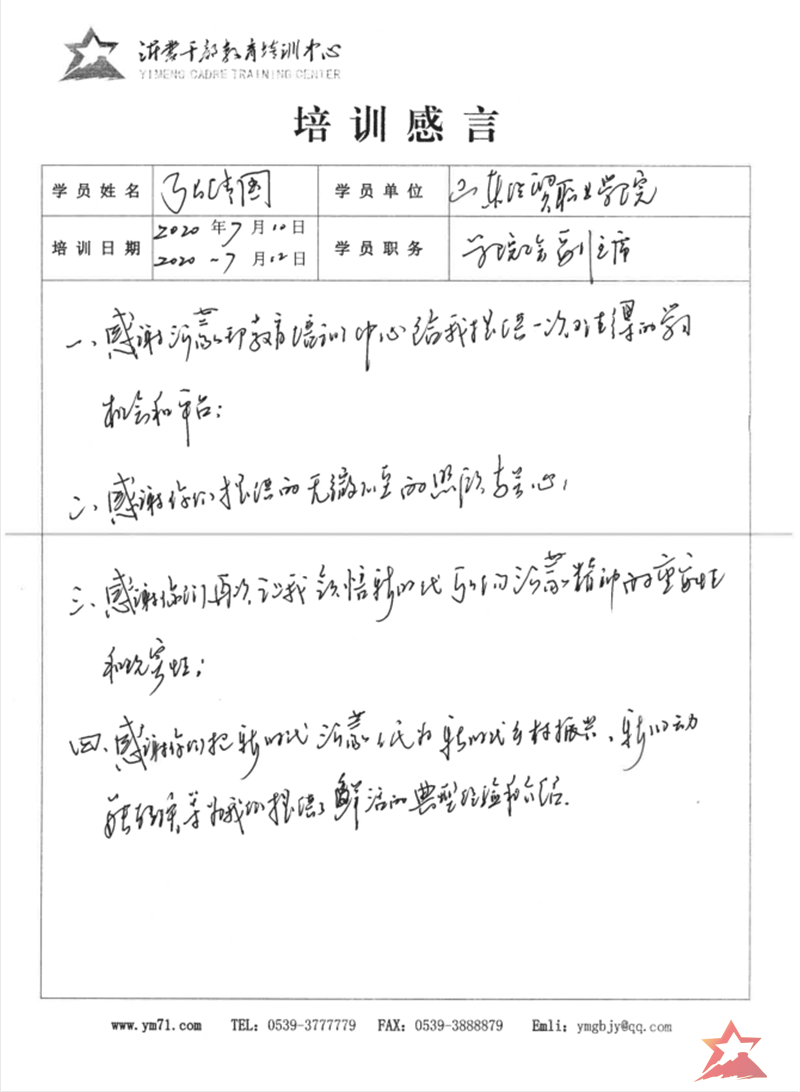 沂蒙干部教育培训中心
YIMENG CADRE TRAINING CENTER
培训感言
学员姓名 学员单位 山东经贸职业学院
培训日期 2020 年 7 月 10 日
2020 ~ 7 月 12 日 学员职务 学院 副主席
一、感谢沂蒙干部教育培训中心给我提供一次难得的学习
机会和平台；
二、感谢你们提供的无微不至的照顾与关心；
三、感谢你们再次让我领悟新时代弘扬沂蒙精神的重要性
和现实性；
四、感谢你们把新时代沂蒙人民为新时代乡村振兴、新旧动
能转换等为我们提供了鲜活的典型经验和介绍.
www.ym71.com TEL：0539-3777779 FAX：0539-3888879 Emli：ymgbjy@qq.com